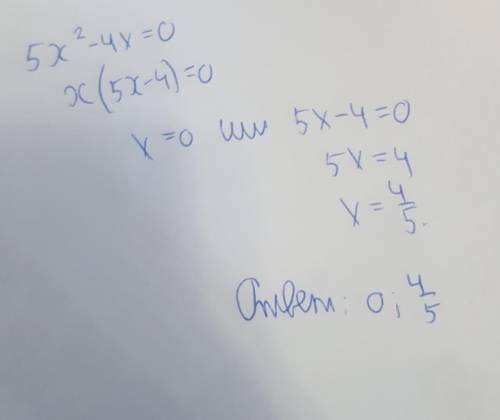 5x²-4x=0
x(5x-4)=0
x=0 или 5x-4=0
5x=4
x=4/5.
Ответ: 0; 4/5